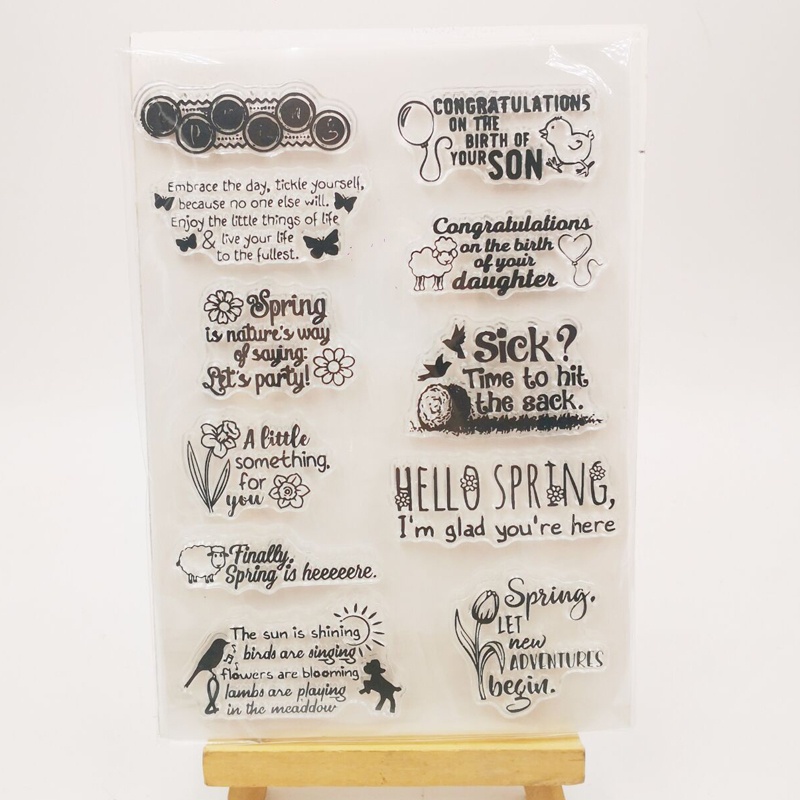 Embrace the day, tickle yourself,
because no one else will.
Enjoy the little things of life
& live your life
to the fullest.
Spring
is nature's way
of saying:
Let's party!
A little
something,
for
you
Finally,
Spring is heeeeere.
The sun is shining
birds are singing
flowers are blooming
lambs are playing
in the meaddow
CONGRATULATIONS
ON THE
BIRTH OF
YOUR SON
Congratulations
on the birth
of your
daughter
Sick?
Time to hit
the sack.
HELLO SPRING,
I'm glad you're here
Spring.
LET
new
ADVENTURES
begin.